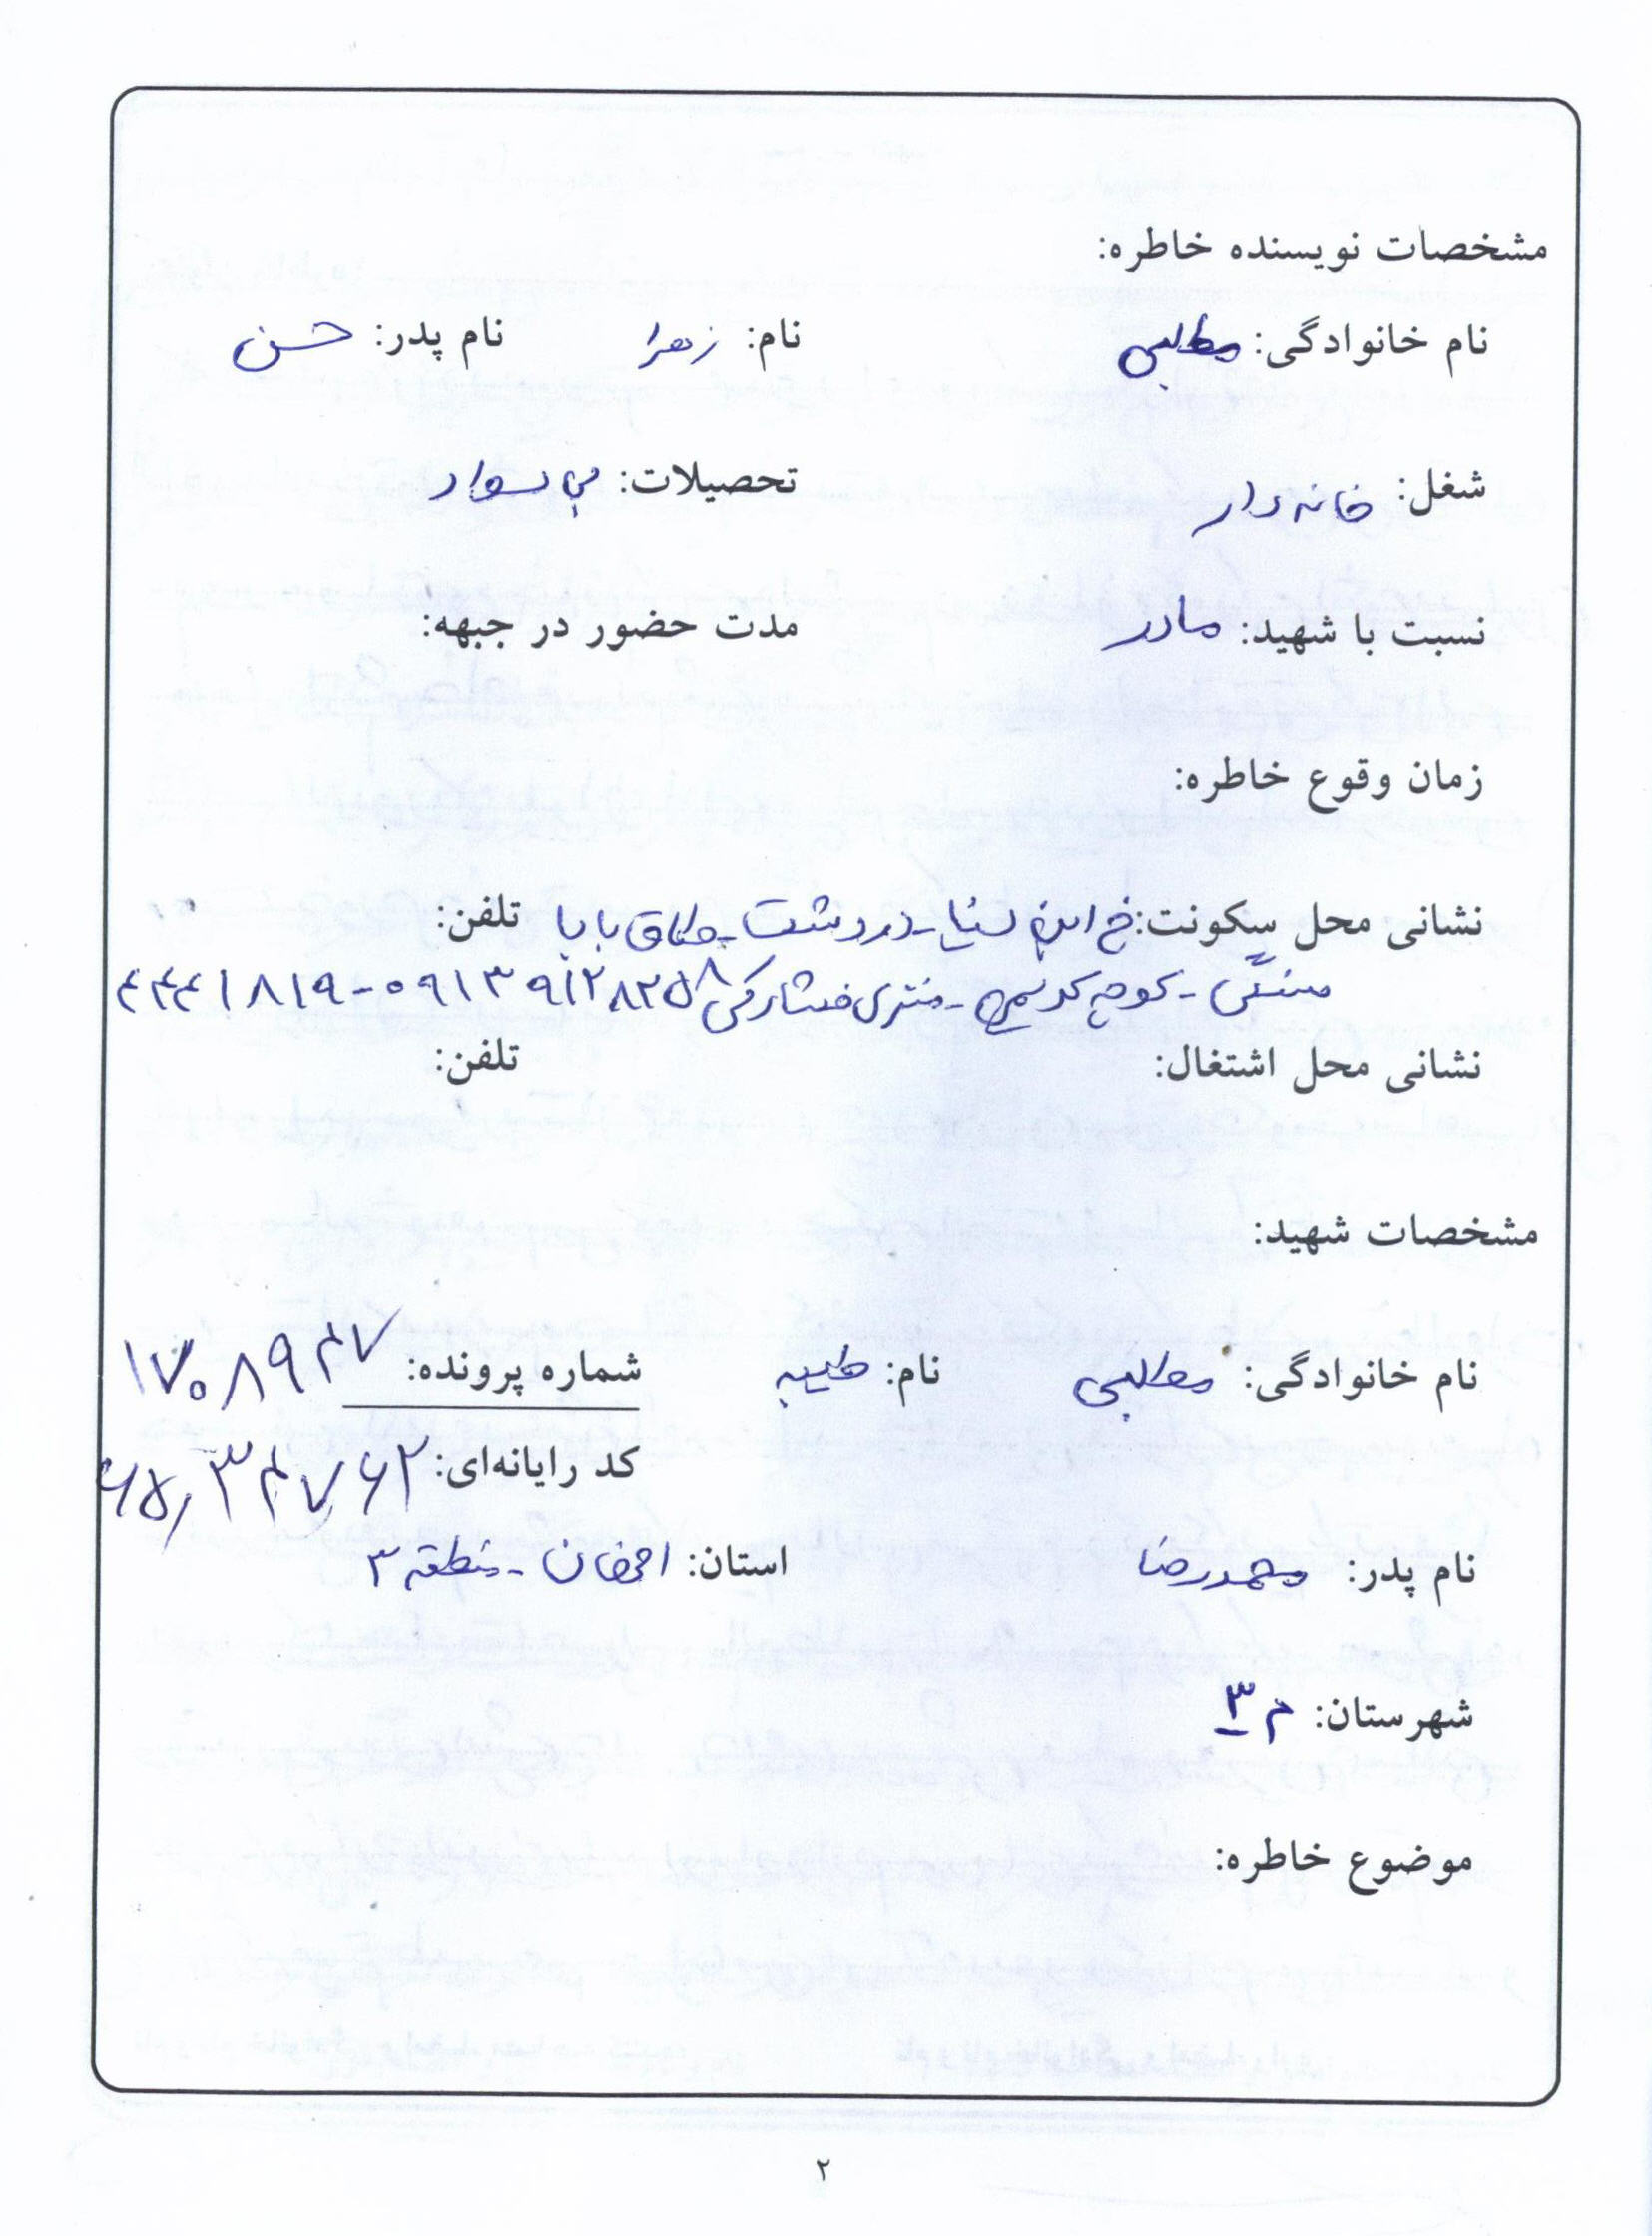 مشخصات نویسنده خاطره:
نام خانوادگی: مطلبی نام: زهرا نام پدر: حسن
شغل: خانه دار تحصیلات: بی سواد
نسبت با شهید: مادر مدت حضور در جبهه:
زمان وقوع خاطره:
نشانی محل سکونت: خ ابن سینا - دردشت - طاق بابا تلفن:
کوچه کریمی -
نشانی محل اشتغال: تلفن:
مشخصات شهید:
نام خانوادگی: مطلبی نام: طیبه شماره پرونده: ۱۷۰۸۹۴۷
کد رایانه‌ای:
نام پدر: محمدرضا استان: اصفهان - منطقه ۳
شهرستان: م ۳
موضوع خاطره:
۲